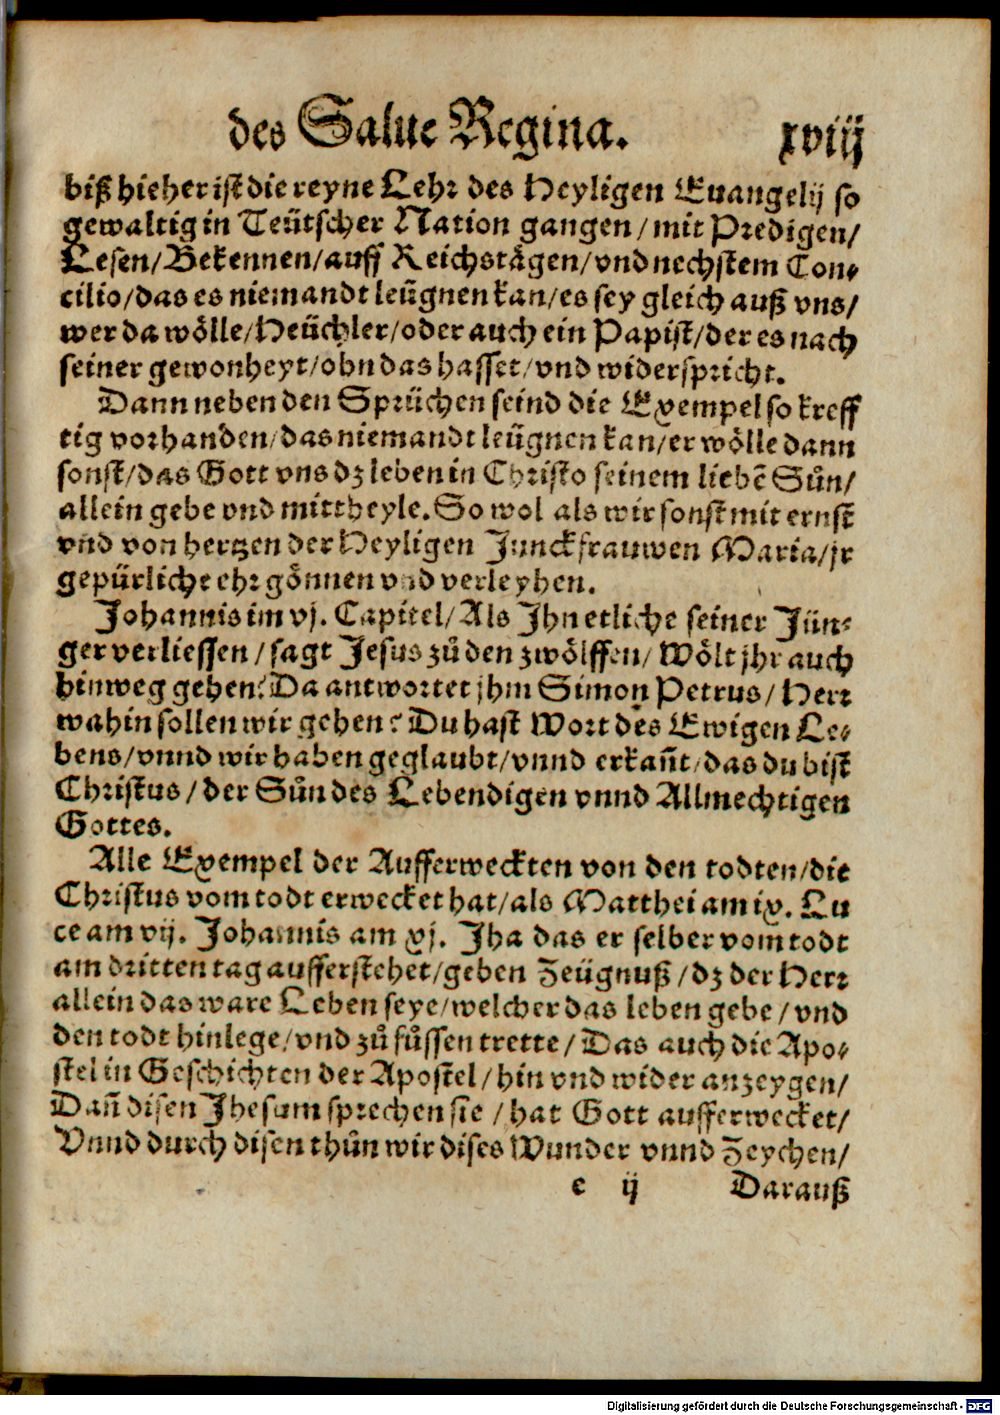 des Salue Regina. xviij
biß hieher ist die reyne Lehr des Heyligen Euangelij so
gewaltig in Teütscher Nation gangen/ mit Predigen/
Lesen/ Bekennen/ auff Reichstågen/ vnd nechstem Con-
cilio/ das es niemandt leügnen kan/ es sey gleich auß vns/
wer da wölle/ Heüchler/ oder auch ein Papist/ der es nach
seiner gewonheyt/ ohn das hasset/ vnd widerspricht.
Dann neben den Sprüchen seind die Exempel so kreff
tig vorhanden/ das niemandt leügnen kan/ er wölle dann
sonst/ das Gott vns dz leben in Christo seinem liebẽ Sůn/
allein gebe vnd mittheyle. So wol als wir sonst mit ernst
vnd von hertzen der Heyligen Junckfrauwen Maria/ jr
gepürliche ehr gönnen vnd verleyhen.
Johannis im vj. Capitel/ Als Ihn etliche seiner Jün-
ger verliessen/ sagt Jesus zů den zwölffen/ Wölt jhr auch
hinweg gehen? Da antwortet jhm Simon Petrus/ Herr
wahin sollen wir gehen? Du hast Wort des Ewigen Le-
bens/ vnnd wir haben geglaubt/ vnnd erkañt/ das du bist
Christus/ der Sůn des Lebendigen vnnd Allmechtigen
Gottes.
Alle Exempel der Aufferweckten von den todten/ die
Christus vom todt erwecket hat/ als Matthei am ix. Lu
ce am vij. Johannis am xj. Jha das er selber vom todt
am dritten tag aufferstehet/ geben Zeügnuß/ dz der Herr
allein das ware Leben seye/ welcher das leben gebe/ vnd
den todt hinlege/ vnd zů fůssen trette/ Das auch die Apo-
stel in Geschichten der Apostel/ hin vnd wider anzeygen/
Dañ disen Jhesum sprechen sie/ hat Gott aufferwecket/
Vnnd durch disen thůn wir dises Wunder vnnd Zeychen/
e ij Darauß
Digitalisierung gefördert durch die Deutsche Forschungsgemeinschaft - DFG